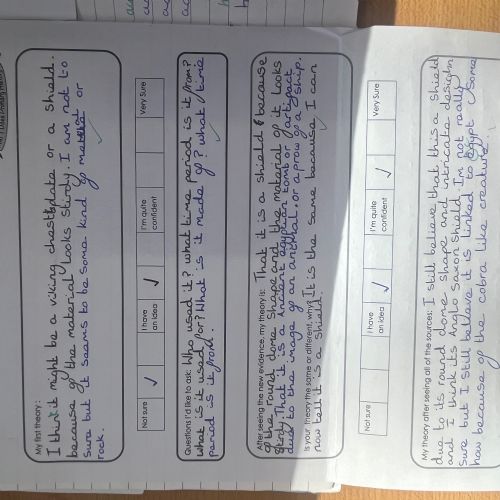 My first theory:
I think it might be a viking chestplate or a shield.
because of the material looks sturdy. I am not to
sure but it seams to be some kind of metal or
rock.
Not sure
I have
an idea
I'm quite
confident
Very Sure
Questions I'd like to ask: Who used it? what time period is it from?
what is it used for? What is it made of? what time
period is it from.
After seeing the new evidence, my theory is: That it is a shield because
of the round dome shape and the material of it looks
sturdy. That it is a Ancient egyptian tomb or artifact
due to the image of an animal. or a prow of a ship.
Is your theory the same or different, why? It is the same because I can
now tell it is a shield.
Not sure
I have
an idea
I'm quite
confident
Very Sure
My theory after seeing all of the sources: I still believe that this a shield
due to its round dome shape and intricate design
and I think its Anglo Saxon shield. I'm not really
sure but I still believe it is linked to egypt some
how because of the cobra like creature.